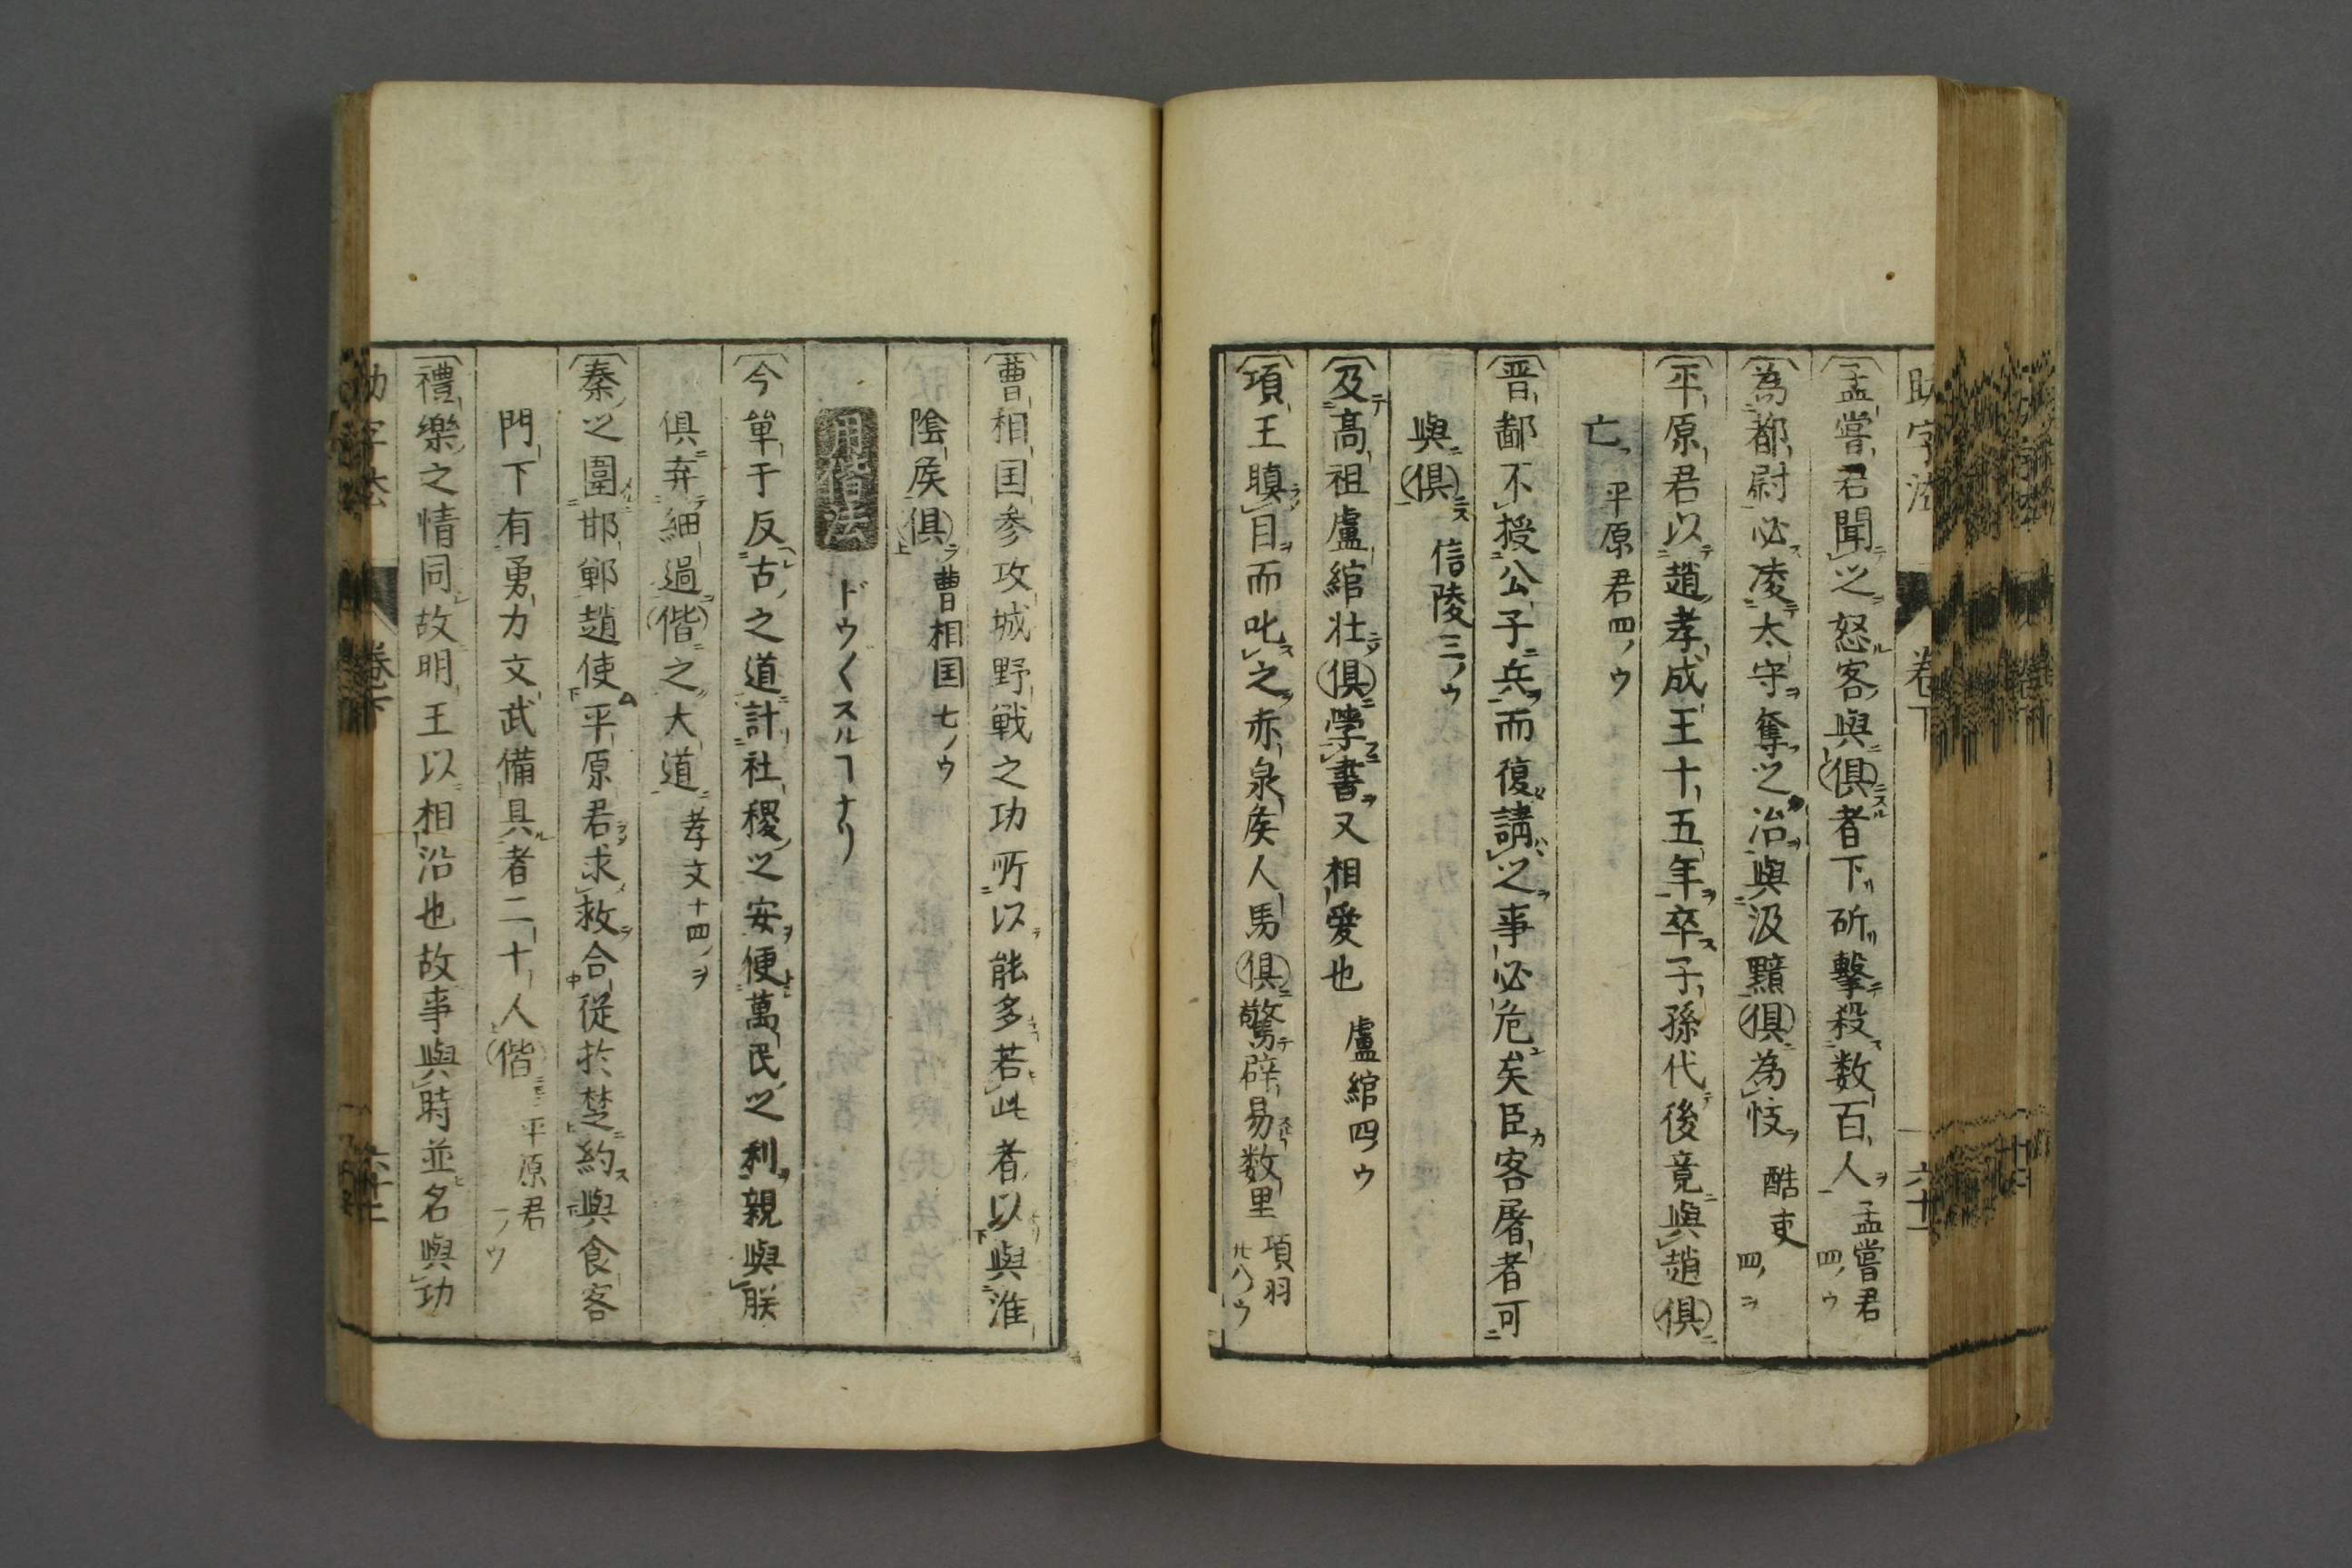 助字法 卷下 六十一
孟嘗君聞之怒客與俱者下斫擊殺数百人 孟嘗君四ノウ
為都尉必凌太守奪之治與汲黯俱為忮 酷吏四ノヲ
平原君以趙孝成王十五年卒子孫代後竟與趙俱
亡 平原君四ノウ
晋鄙不授公子兵而復請之事必危矣臣客屠者可
與俱 信陵三ノウ
及高祖盧綰壮俱學書又相愛也 盧綰四ノウ
項王瞋目而叱之赤泉矦人馬俱驚辟易数里 項羽廿八ノウ
曹相国参攻城野戦之功所以能多若此者以與淮
陰矦俱 曹相国七ノウ
用偕法 ドウ〱スルヿナリ
今単于反古之道計社稷之安便萬民之利親與朕
俱弃細過偕之大道 孝文十四ノヲ
秦之圍邯鄲趙使平原君求救合從於楚約與食客
門下有勇力文武備具者二十人偕 平原君一ノウ
禮樂之情同故明王以相沿也故事與時並名與功
助字法 卷下 六十二